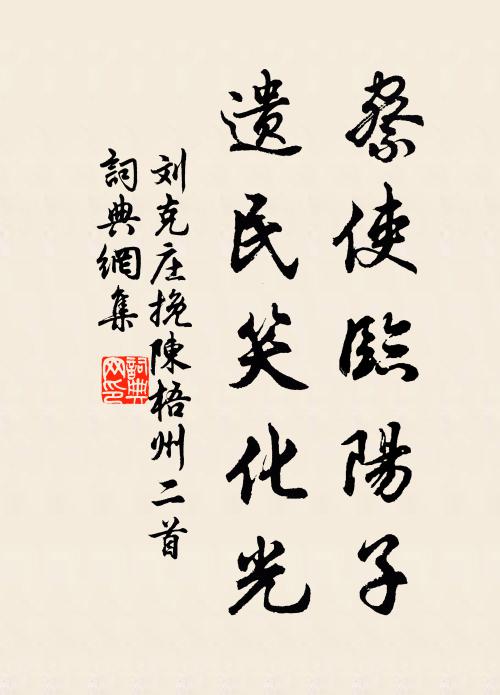 察使臨陽子
遺民哭化光
刘克庄挽陳梧州二首
詞典網集
詞典网印